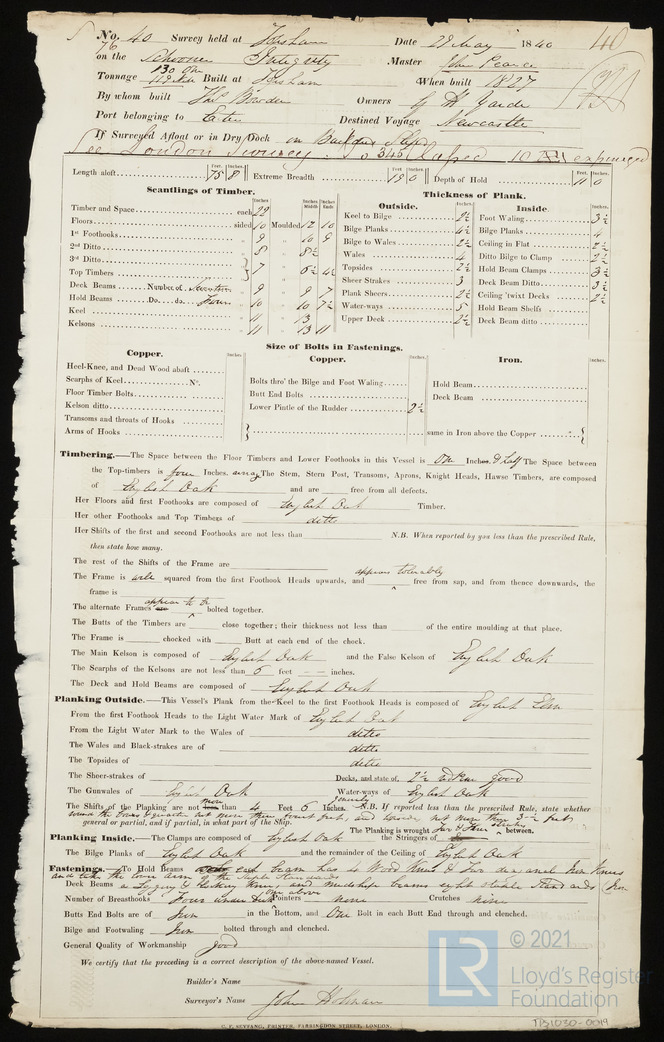 No. 40 Survey held at Topsham Date 29 May 1840 40
76
on the Schooner Integrity Master John Pearce
Tonnage 130 Built at Topsham When built 1827
By whom built Thos Bowden Owners
Port belonging to Destined Voyage Newcastle
If Surveyed Afloat or in Dry Dock on Builders Slip
See London Survey No 345 lapsed 10 expunged
Length aloft Feet. Inches. 75 8 Extreme Breadth Feet. Inches. 19 0 Depth of Hold Feet. Inches. 11 0
Scantlings of Timber.
Inches Inches Middle Inches Ends
Timber and Space each 22
Floors sided 10 Moulded 12 10
1st Foothooks 9 " 10 9
2nd Ditto 8 " 8½
3rd Ditto
Top Timbers } 7 " 6½ 4½
Deck Beams Number of 9 " 9 7
Hold Beams Do. do. Four 10 " 10 7½
Keel 11 " 13
Kelsons 11 " 13 11
Thickness of Plank.
Outside. Inches
Keel to Bilge 2½
Bilge Planks 4½
Bilge to Wales 2½
Wales 4
Topsides 2½
Sheer Strakes 3
Plank Sheers 2½
Water-ways 5
Upper Deck 2½
Inside. Inches
Foot Waling 3½
Bilge Planks 4
Ceiling in Flat 2½
Ditto Bilge to Clamp 2½
Hold Beam Clamps 3½
Deck Beam Ditto 3½
Ceiling 'twixt Decks 2½
Hold Beam Shelfs
Deck Beam ditto
Size of Bolts in Fastenings.
Copper. Inches.
Heel-Knee, and Dead Wood abaft
Scarphs of Keel No.
Floor Timber Bolts
Kelson ditto
Transoms and throats of Hooks
Arms of Hooks
Copper. Inches.
Bolts thro' the Bilge and Foot Waling
Butt End Bolts
Lower Pintle of the Rudder 2½
Iron. Inches.
Hold Beam
Deck Beam
same in Iron above the Copper
Timbering.—The Space between the Floor Timbers and Lower Foothooks in this Vessel is One Inches. & half The Space between
the Top-timbers is four Inches. The Stem, Stern Post, Transoms, Aprons, Knight Heads, Hawse Timbers, are composed
of English Oak and are free from all defects.
Her Floors and first Foothooks are composed of English Oak Timber.
Her other Foothooks and Top Timbers of ditto
Her Shifts of the first and second Foothooks are not less than N.B. When reported by you less than the prescribed Rule,
then state how many.
The rest of the Shifts of the Frame are
appears tolerably
The Frame is well squared from the first Foothook Heads upwards, and free from sap, and from thence downwards, the
frame is
appear to be
The alternate Frames are bolted together.
The Butts of the Timbers are close together; their thickness not less than of the entire moulding at that place.
The Frame is chocked with Butt at each end of the chock.
The Main Kelson is composed of English Oak and the False Kelson of English Oak
The Scarphs of the Kelsons are not less than 5 feet inches.
The Deck and Hold Beams are composed of English Oak
Planking Outside.—This Vessel's Plank from the Keel to the first Foothook Heads is composed of English Elm
From the first Foothook Heads to the Light Water Mark of English Oak
From the Light Water Mark to the Wales of ditto
The Wales and Black-strakes are of ditto
The Topsides of ditto
The Sheer-strakes of Decks, and state of, 2½ good
The Gunwales of English Oak Water-ways of English Oak
The Shifts of the Planking are not more less than 4 Feet 6 Inches. generally N.B. If reported less than the prescribed Rule, state whether
general or partial, and if partial, in what part of the Ship.
round the bows & quarter not more than feet, and not more than 3½ feet
The Planking is wrought between.
Planking Inside.—The Clamps are composed of English Oak the Stringers of
The Bilge Planks of English Oak and the remainder of the Ceiling of English Oak
Fastenings.—To Hold Beams each end beam has 4 Wood Knees & two diagonal Iron Knees
Deck Beams
Number of Breasthooks Four under Deck one above Pointers none Crutches none
Butts End Bolts are of Iron in the Bottom, and One Bolt in each Butt End through and clenched.
Bilge and Footwaling Iron bolted through and clenched.
General Quality of Workmanship good
We certify that the preceding is a correct description of the above-named Vessel.
Builder's Name
Surveyor's Name John Holman
C. F. SEYFANG, PRINTER, FARRINGDON STREET, LONDON.
LR © 2021
Lloyd's Register
Foundation